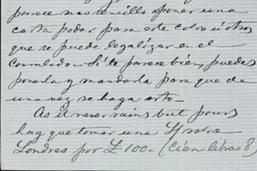 parece mas sencillo poner una
carta poder para este cobro ú otros
que se puede legalizar en el
Consulado. Si te parece bien, puedes
ponerla y mandarla para que de
una vez se haga esto.
As it never rains but pours
hay que tomar una £ sobre
Londres por £100„ (Cien libras E)